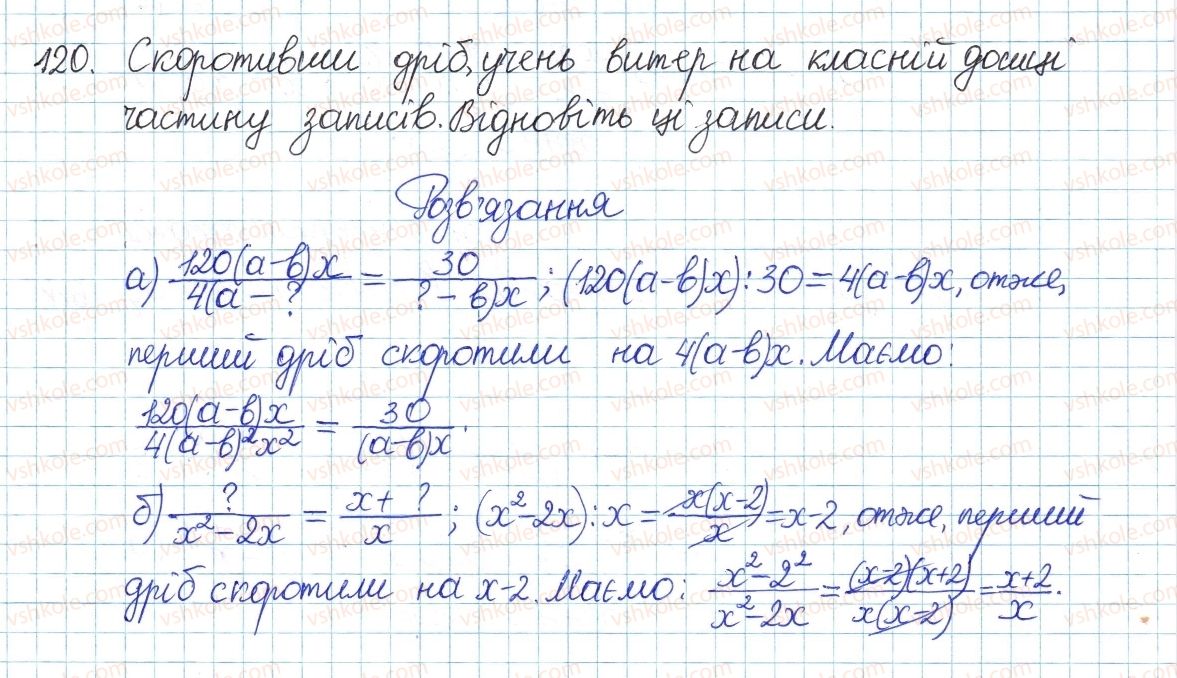 120. Скоротивши дріб, учень витер на класній дошці
частину записів. Відновіть ці записи.
Розв'язання
а) 120(a-b)x / 4(a - ? = 30 / ? - b)x ; (120(a-b)x) : 30 = 4(a-b)x, отже,
перший дріб скоротили на 4(a-b)x. Маємо:
120(a-b)x / 4(a-b)²x² = 30 / (a-b)x .
б) ? / x²-2x = x+ ? / x ; (x²-2x) : x = x(x-2) / x = x-2, отже, перший
дріб скоротили на x-2. Маємо: x²-2² / x²-2x = (x-2)(x+2) / x(x-2) = x+2 / x .